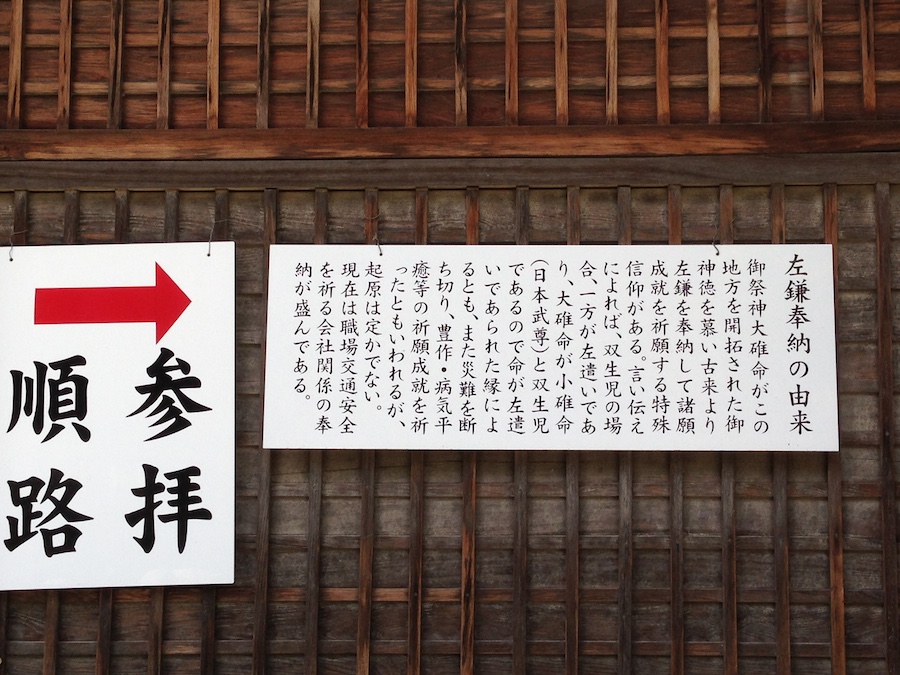 左鎌奉納の由来
御祭神大碓命がこの
地方を開拓された御
神徳を慕い古来より
左鎌を奉納して諸願
成就を祈願する特殊
信仰がある。言い伝え
によれば、双生児の場
合、一方が左遣いであ
り、大碓命が小碓命
(日本武尊)と双生児
であるので命が左遣
いであられた縁によ
るとも、また災難を断
ち切り、豊作・病気平
癒等の祈願成就を祈
ったともいわれるが、
起原は定かでない。
現在は職場交通安全
を祈る会社関係の奉
納が盛んである。
参拝
順路